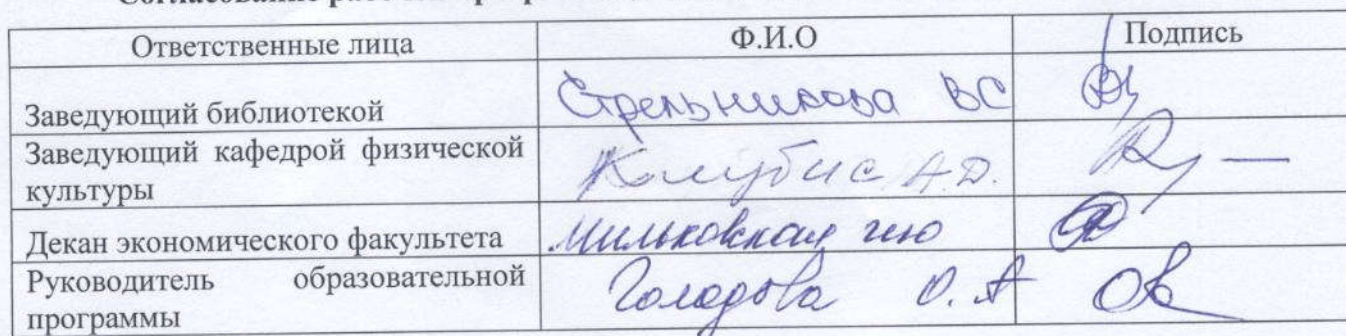 Ответственные лица Ф.И.О Подпись
Заведующий библиотекой Стрельникова ВС
Заведующий кафедрой физической
культуры А.Д.
Декан экономического факультета Мильковская
Руководитель образовательной Голодова О.А
программы